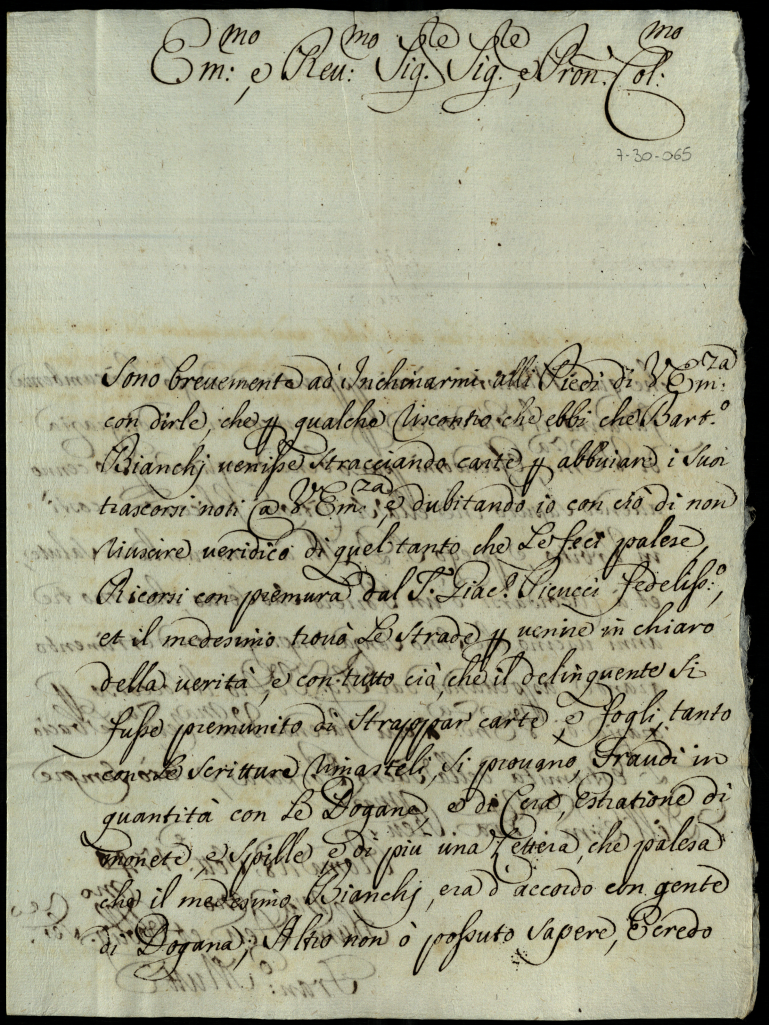 Em:mo e Reu:mo Sig:re Sig:re, e Pron: Col:mo
7-30-065
Sono breuemente ad Inchinarmi alli Piedi di V Em:za
con dirle, che p qualche riscontro che ebbi che Bart:o
Bianchj uenisse stracciando carte p abbuiare i suoi
trascorsi noti a V Em:za, e dubitando io con ciò di non
riuscire ueridico di quel tanto che Le feci palese,
Ricorsi con premura dal S:r Giac:o Picucci fedeliss:o,
et il medesimo trouò Le strade p uenire in chiaro
della uerità, e con tutto ciò, che il delinquente si
fusse premunito di strappar carte, e fogli, tanto
con Le scritture rimasteli, si prouano, Fraudi in
quantità con Le Dogane, e di Cera, estratione di
monete, e spille, e di più una Lettera, che palesa
che il medesimo Bianchj, era d'accordo con gente
di Dogana; Altro non ò possuto sapere, E credo